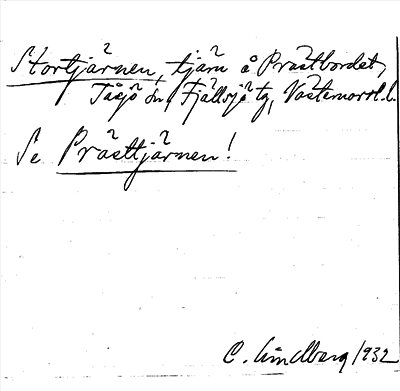 Stortjärnen, tjärn å Prästbordet,
Tåsjö sn, Fjällsjö tg, Västernorrl. l.
Se Prästtjärnen!
C. Lindberg 1932